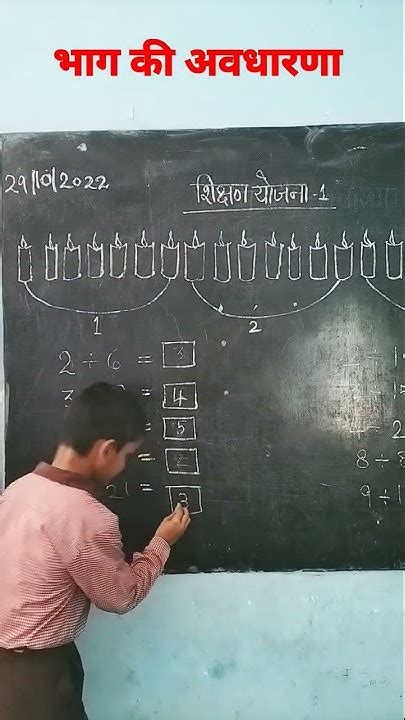 भाग की अवधारणा
29/10/2022
शिक्षण योजना-1
1 2
2 ÷ 6 = 3
3 = 4
= 5
=
21 = 3
8 ÷
9 ÷ 1